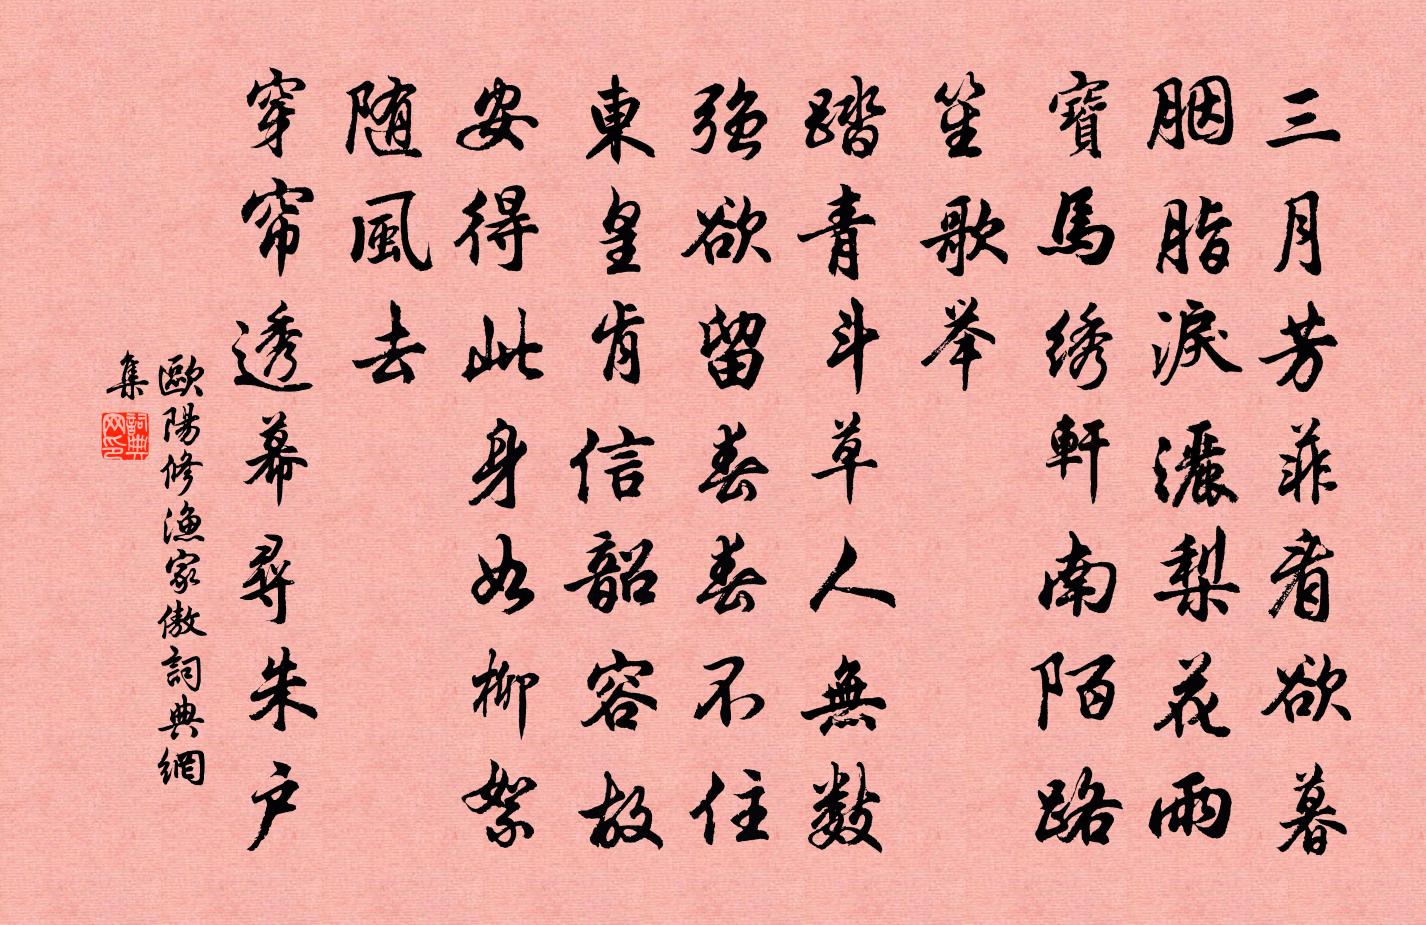 三月芳菲看欲暮
胭脂淚灑梨花雨
寶馬绣軒南陌路
笙歌举
踏青斗草人無數
強欲留春春不住
東皇肯信韶容故
安得此身如柳絮
随風去
穿帘透幕尋朱户
歐陽修漁家傲詞典網
集
詞典网印